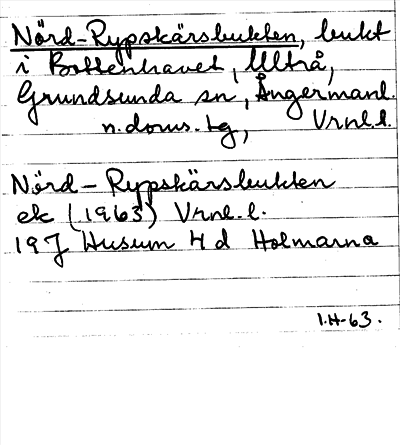 Nörd-Rypskärsbukten, bukt
i Bottenhavet, Ultrå,
Grundsunda sn, Ångermanl.
n. doms. tg, Vrnl.l.
Nörd-Rypskärsbukten
ek (1963) Vrnl.l.
19J Husum 4d Holmarna
1.H-63.